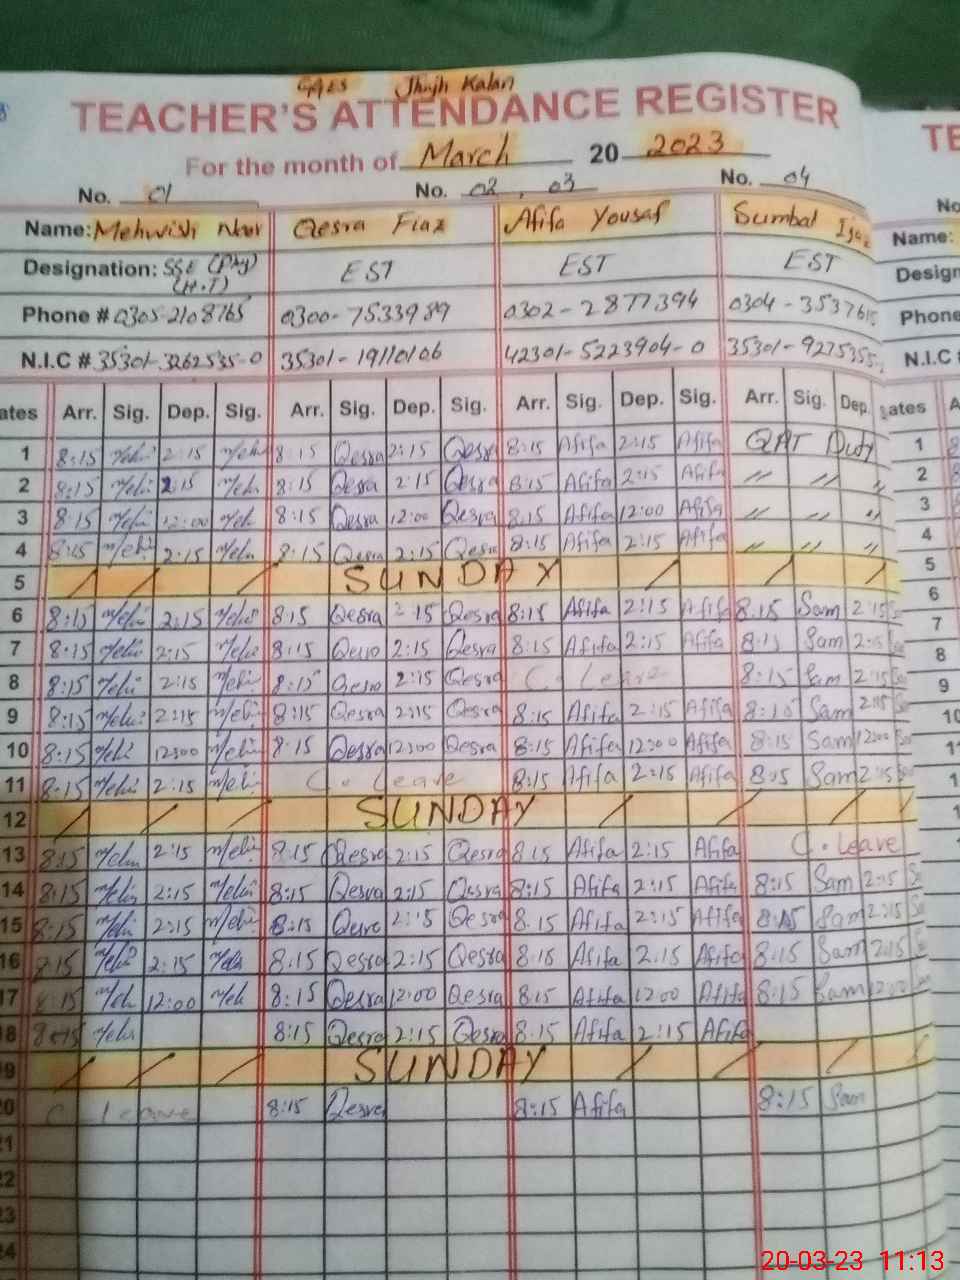 GGES Jhujh Kalan
TEACHER'S ATTENDANCE REGISTER TE
For the month of March 20 2023
No. 01 No. 02, 03 No. 04 No
Name: Mehwish Noor Qesra Fiaz Afifa Yousaf Sumbal Ijaz Name:
Designation: SSE (Phy) EST EST EST Design
(H.T)
Phone # 0305-2108765 0300-7533989 0302-2877394 0304-353761 Phone
N.I.C # 35301-3262535-0 35301-19110106 42301-5223904-0 35301-9275355- N.I.C #
ates Arr. Sig. Dep. Sig. Arr. Sig. Dep. Sig. Arr. Sig. Dep. Sig. Arr. Sig. Dep. ates A
1 8:15 Mehi 2:15 Meh 8:15 Qesra 2:15 Qesra 8:15 Afifa 2:15 Afifa QAT Duty 1
2 8:15 Mehi 2:15 Meh 8:15 Qesra 2:15 Qesra 8:15 Afifa 2:15 Afifa " " " 2
3 8:15 Mehi 12:00 Meh 8:15 Qesra 12:00 Qesra 8:15 Afifa 12:00 Afifa " " " 3
4 8:15 Mehi 2:15 Meh 8:15 Qesra 2:15 Qesra 8:15 Afifa 2:15 Afifa " " " 4
5 SUNDAY 5
6 8:15 Mehi 2:15 Mehi 8:15 Qesra 2:15 Qesra 8:15 Afifa 2:15 Afifa 8:15 Sam 2:15 6
7 8:15 Mehi 2:15 Mehi 8:15 Qesra 2:15 Qesra 8:15 Afifa 2:15 Afifa 8:15 Sam 2:15 7
8 8:15 Mehi 2:15 Mehi 8:15 Qesra 2:15 Qesra C. Leave 8:15 Sam 2:15 8
9 8:15 Mehi 2:15 Mehi 8:15 Qesra 2:15 Qesra 8:15 Afifa 2:15 Afifa 8:15 Sam 2:15 9
10 8:15 Mehi 12:00 Mehi 8:15 Qesra 12:00 Qesra 8:15 Afifa 12:00 Afifa 8:15 Sam 12:00 10
11 8:15 Mehi 2:15 Mehi C. Leave 8:15 Afifa 2:15 Afifa 8:15 Sam 2:15 11
12 SUNDAY
13 8:15 Mehi 2:15 Mehi 8:15 Qesra 2:15 Qesra 8:15 Afifa 2:15 Afifa C. Leave
14 8:15 Mehi 2:15 Mehi 8:15 Qesra 2:15 Qesra 8:15 Afifa 2:15 Afifa 8:15 Sam 2:15
15 8:15 Mehi 2:15 Mehi 8:15 Qesra 2:15 Qesra 8:15 Afifa 2:15 Afifa 8:15 Sam 2:15
16 8:15 Mehi 2:15 Meh 8:15 Qesra 2:15 Qesra 8:15 Afifa 2:15 Afifa 8:15 Sam 2:15
17 8:15 Meh 12:00 Meh 8:15 Qesra 12:00 Qesra 8:15 Afifa 12:00 Afifa 8:15 Sam 12:00
18 8:15 Mehi 8:15 Qesra 2:15 Qesra 8:15 Afifa 2:15 Afifa
9 SUNDAY
20 C. Leave 8:15 Qesra 8:15 Afifa 8:15 Sam
21
22
23
24
20-03-23 11:13